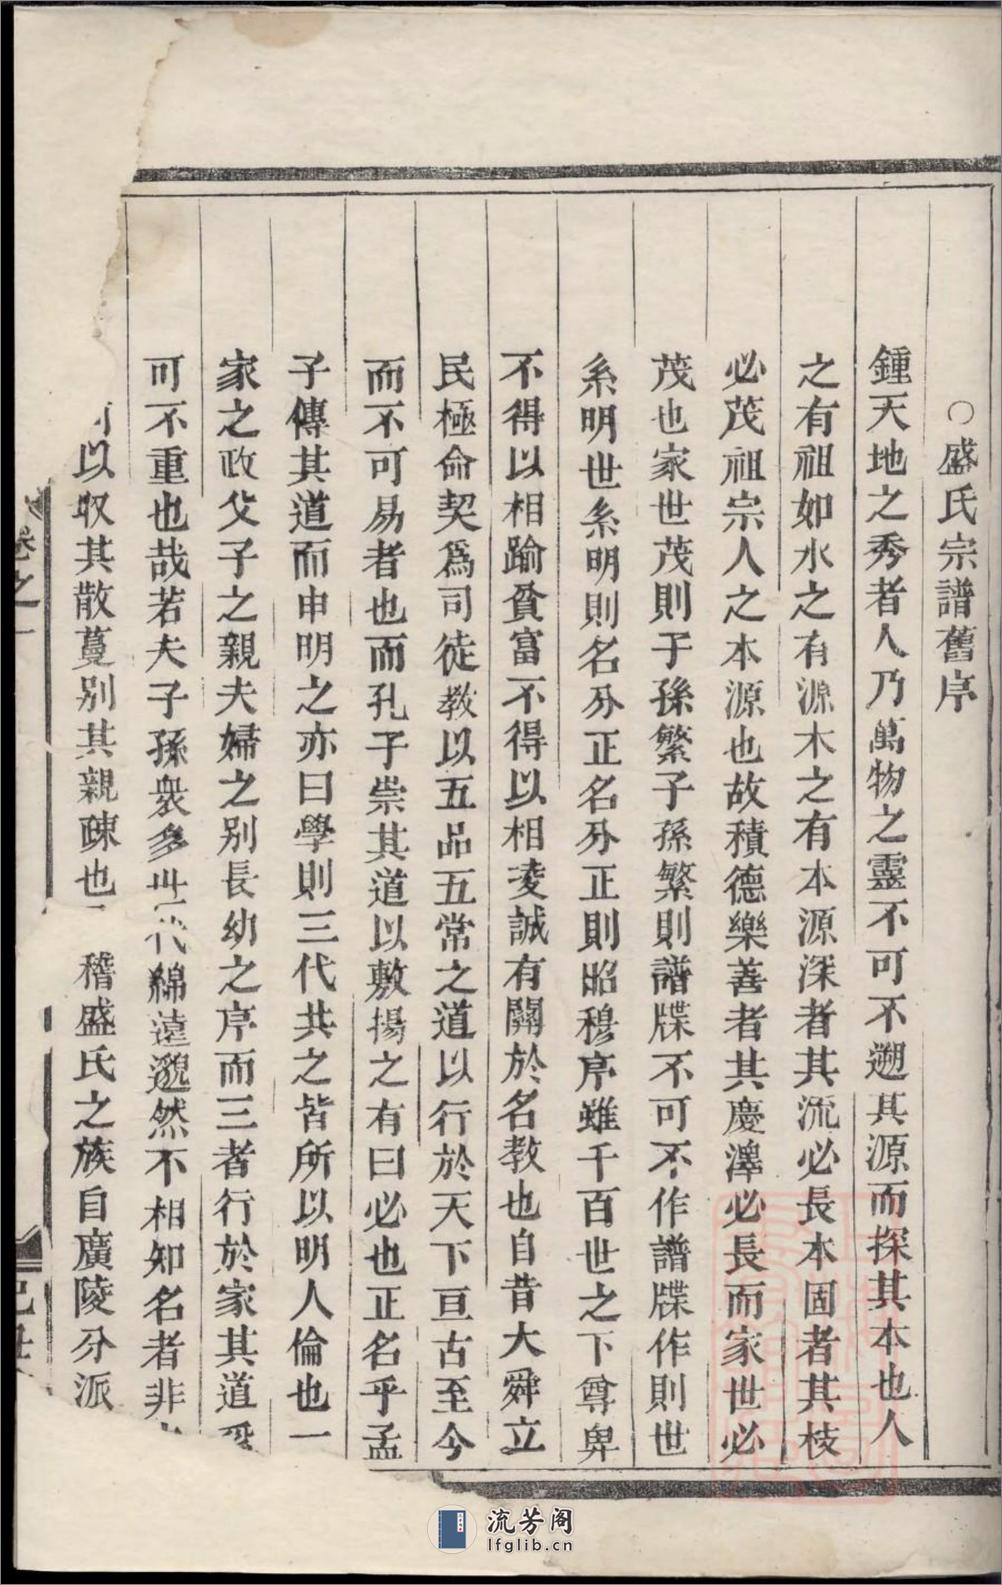 ○盛氏宗譜舊序
鍾天地之秀者人乃萬物之靈不可不遡其源而探其本也人
之有祖如水之有源木之有本源深者其流必長本固者其枝
必茂祖宗人之本源也故積德樂善者其慶澤必長而家世必
茂也家世茂則子孫繁子孫繁則譜牒不可不作譜牒作則世
系明世系明則名分正名分正則昭穆序雖千百世之下尊卑
不得以相踰貧富不得以相凌誠有關於名教也自昔大舜立
民極命契爲司徒教以五品五常之道以行於天下亘古至今
而不可易者也而孔子崇其道以敷揚之有曰必也正名乎孟
子傳其道而申明之亦曰學則三代共之皆所以明人倫也一
家之政父子之親夫婦之別長幼之序而三者行於家其道
可不重也哉若夫子孫衆多世代綿遠邈然不相知名者非
以収其散蔓別其親疎也 稽盛氏之族自廣陵分派
卷之一
流芳阁
lfglib.cn